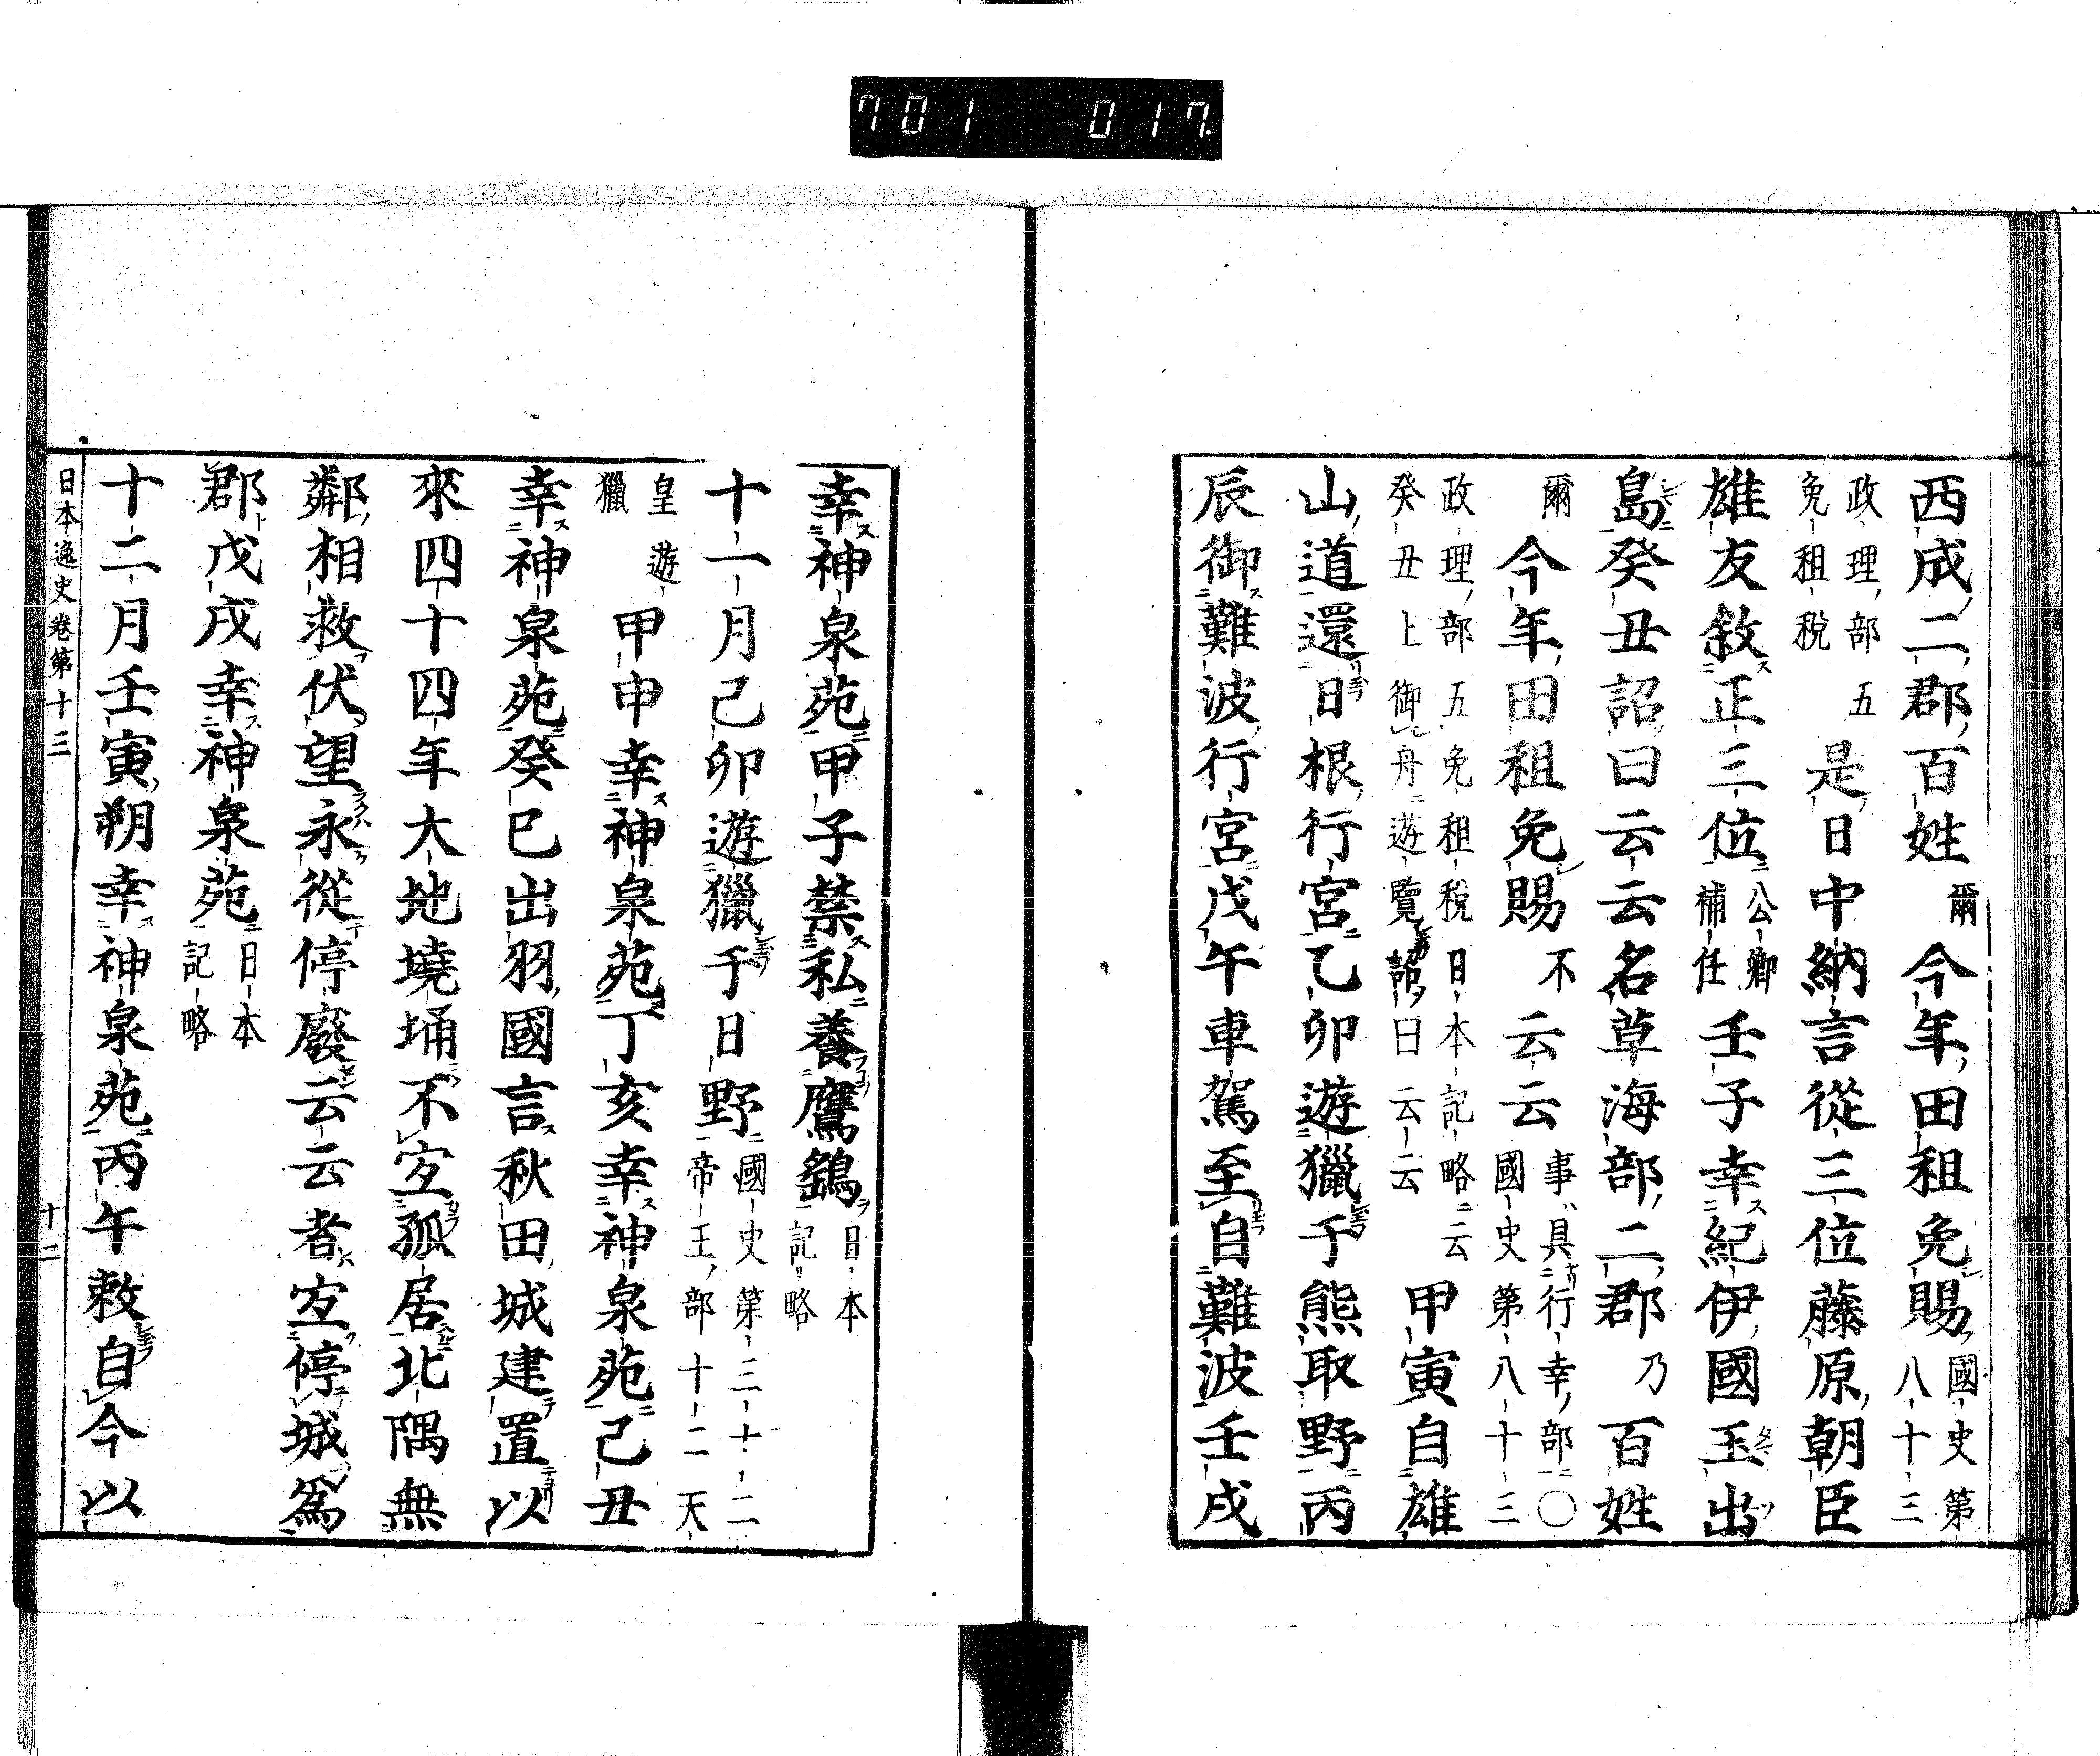 701 017
西成二郡百姓爾今年田租免賜國史第八十三
政理部五免租税是日中納言從三位藤原朝臣
雄友敘正三位公卿補任壬子幸紀伊國玉出
島癸丑詔曰云云名草海部二郡乃百姓
爾今年田租免賜不云云事具行幸部〇國史第八十三
政理部五免租税日本記略云癸丑上御舟遊覽詔曰云云甲寅自雄
山道還日根行宮乙卯遊獵于熊取野丙
辰御難波行宮戊午車駕至自難波壬戌
幸神泉苑甲子禁私養鷹鷂日本記略
十一月己卯遊獵于日野國史第三十二帝王部十二天
皇遊獵甲申幸神泉苑丁亥幸神泉苑己丑
幸神泉苑癸巳出羽國言秋田城建置以
來四十四年大地墝埇不宐孤居北隅無
鄰相救伏望永從停廢云云者宐停城爲
郡戊戌幸神泉苑日本記略
十二月壬寅朔幸神泉苑丙午敕自今以
日本逸史卷第十三 十二